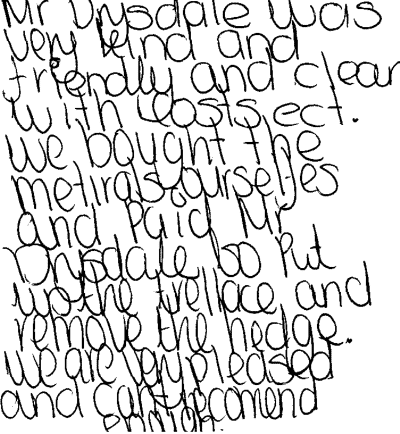 Mr Drysdale was
very kind and
friendly and clear
with costs ect.
we bought the
metirals ourselfes
and paid Mr
Drysdale to put
up the trellace and
remove the hedge.
we are very pleased
and can't recomend
enough.